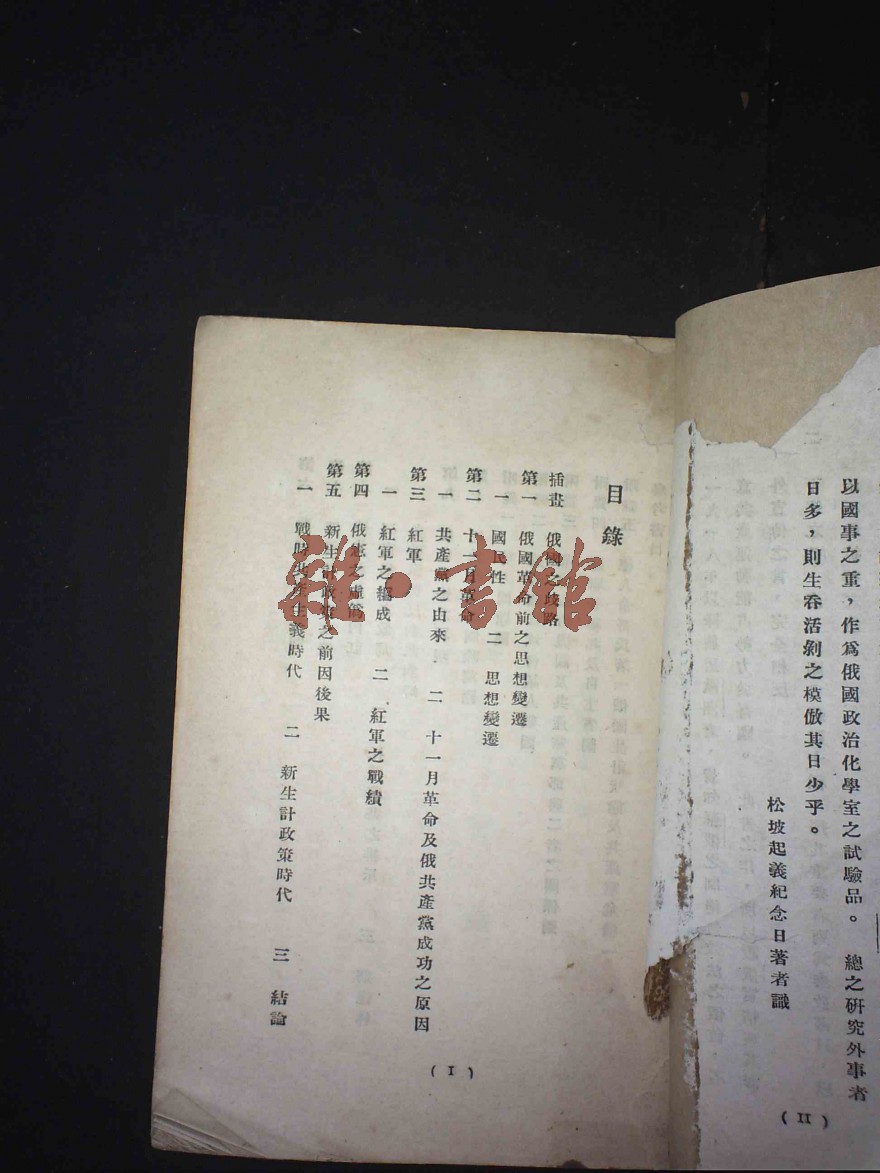 以國事之重，作爲俄國政治化學室之試驗品。 總之研究外事者
日多，則生吞活剝之模倣其日少乎。
松坡起義紀念日著者識
( II )
目錄
插畫 俄國之歧路
第一 俄國革命前之思想變遷
一 國民性 二 思想變遷
第二 十一月革命
一 共產黨之由來 二 十一月革命及俄共產黨成功之原因
第三 紅軍
一 紅軍之組成 二 紅軍之戰績
第四 俄憲之
第五 新生計政策之前因後果
一 戰時共產主義時代 二 新生計政策時代 三 結論
( I )
雜·書館